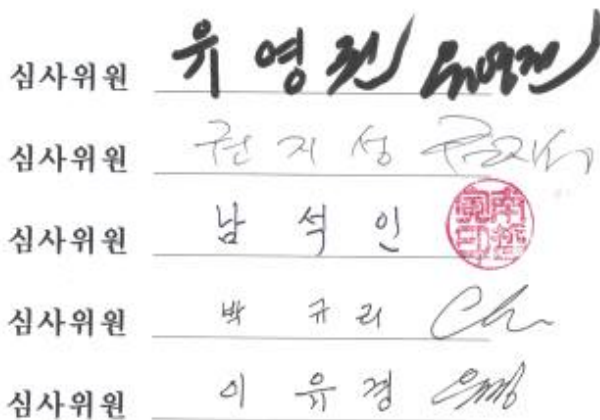 심사위원 유영권 유영권
심사위원 권지성 권지성
심사위원 남석인
심사위원 박규리
심사위원 이유경